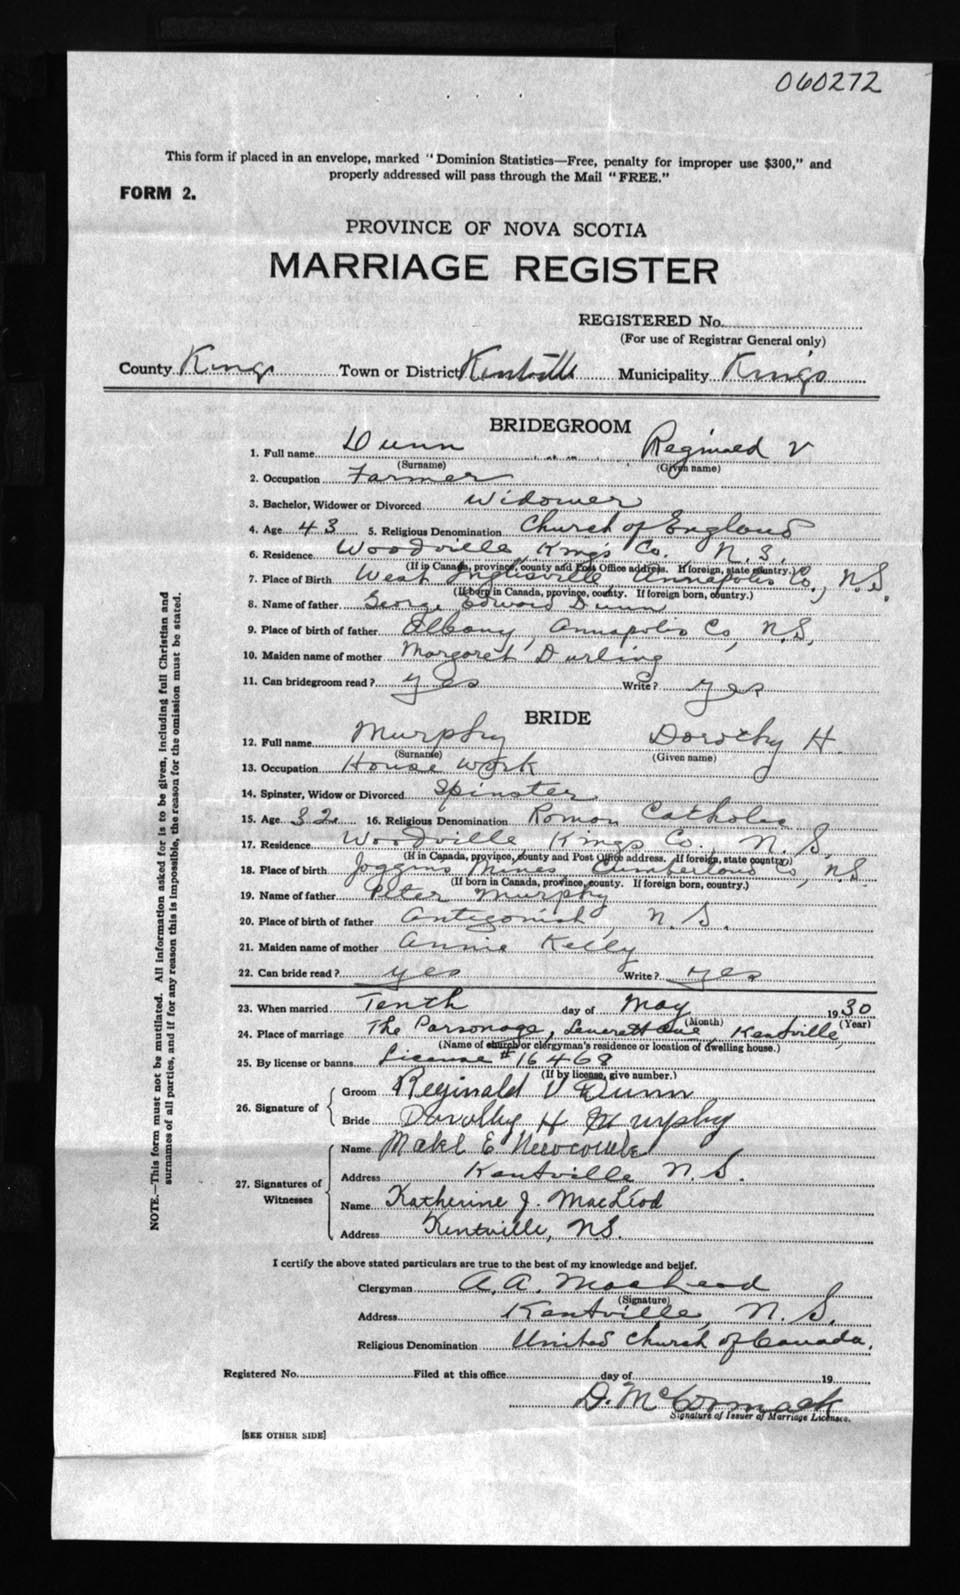 060272
This form if placed in an envelope, marked "Dominion Statistics—Free, penalty for improper use $300," and
properly addressed will pass through the Mail "FREE."
FORM 2.
PROVINCE OF NOVA SCOTIA
MARRIAGE REGISTER
REGISTERED No.
(For use of Registrar General only)
County Kings Town or District Kentville Municipality Kings
BRIDEGROOM
1. Full name Dunn Reginald V
(Surname) (Given name)
2. Occupation Farmer
3. Bachelor, Widower or Divorced Widower
4. Age 43 5. Religious Denomination Church of England
6. Residence Woodville Kings Co. N.S.
(If in Canada, province, county and Post Office address. If foreign, state country.)
7. Place of Birth West Inglisville, Annapolis Co., N.S.
(If born in Canada, province, county. If foreign born, country.)
8. Name of father George Edward Dunn
9. Place of birth of father Albany, Annapolis Co, N.S.,
10. Maiden name of mother Margaret Durling
11. Can bridegroom read? yes Write? yes
BRIDE
12. Full name Murphy Dorothy H.
(Surname) (Given name)
13. Occupation House work
14. Spinster, Widow or Divorced Spinster
15. Age 32 16. Religious Denomination Roman Catholic
17. Residence Woodville Kings Co. N.S.
(If in Canada, province, county and Post Office address. If foreign, state country)
18. Place of birth Joggins Mines Cumberland Co, N.S.
(If born in Canada, province, county. If foreign born, country.)
19. Name of father Peter Murphy
20. Place of birth of father Antigonish, N.S.
21. Maiden name of mother Annie Kelly
22. Can bride read? yes Write? yes
23. When married Tenth day of May 1930
(Month) (Year)
24. Place of marriage The Parsonage, Leverett Ave Kentville,
(Name of church or clergyman's residence or location of dwelling house.)
25. By license or banns License # 16468
(If by license, give number.)
26. Signature of Groom Reginald V Dunn
Bride Dorothy H Murphy
27. Signatures of Witnesses
Name Mabel E Newcombe
Address Kentville N.S.
Name Katherine J. MacLeod
Address Kentville, N.S.
I certify the above stated particulars are true to the best of my knowledge and belief.
Clergyman A. A. MacLeod
(Signature)
Address Kentville, N.S.
Religious Denomination United Church of Canada.
Registered No. Filed at this office day of 19
D. McCormack
Signature of Issuer of Marriage Licenses.
[SEE OTHER SIDE]
NOTE.—This form must not be mutilated. All information asked for is to be given, including full Christian and
surnames of all parties, and if for any reason this is impossible, the reason for the omission must be stated.